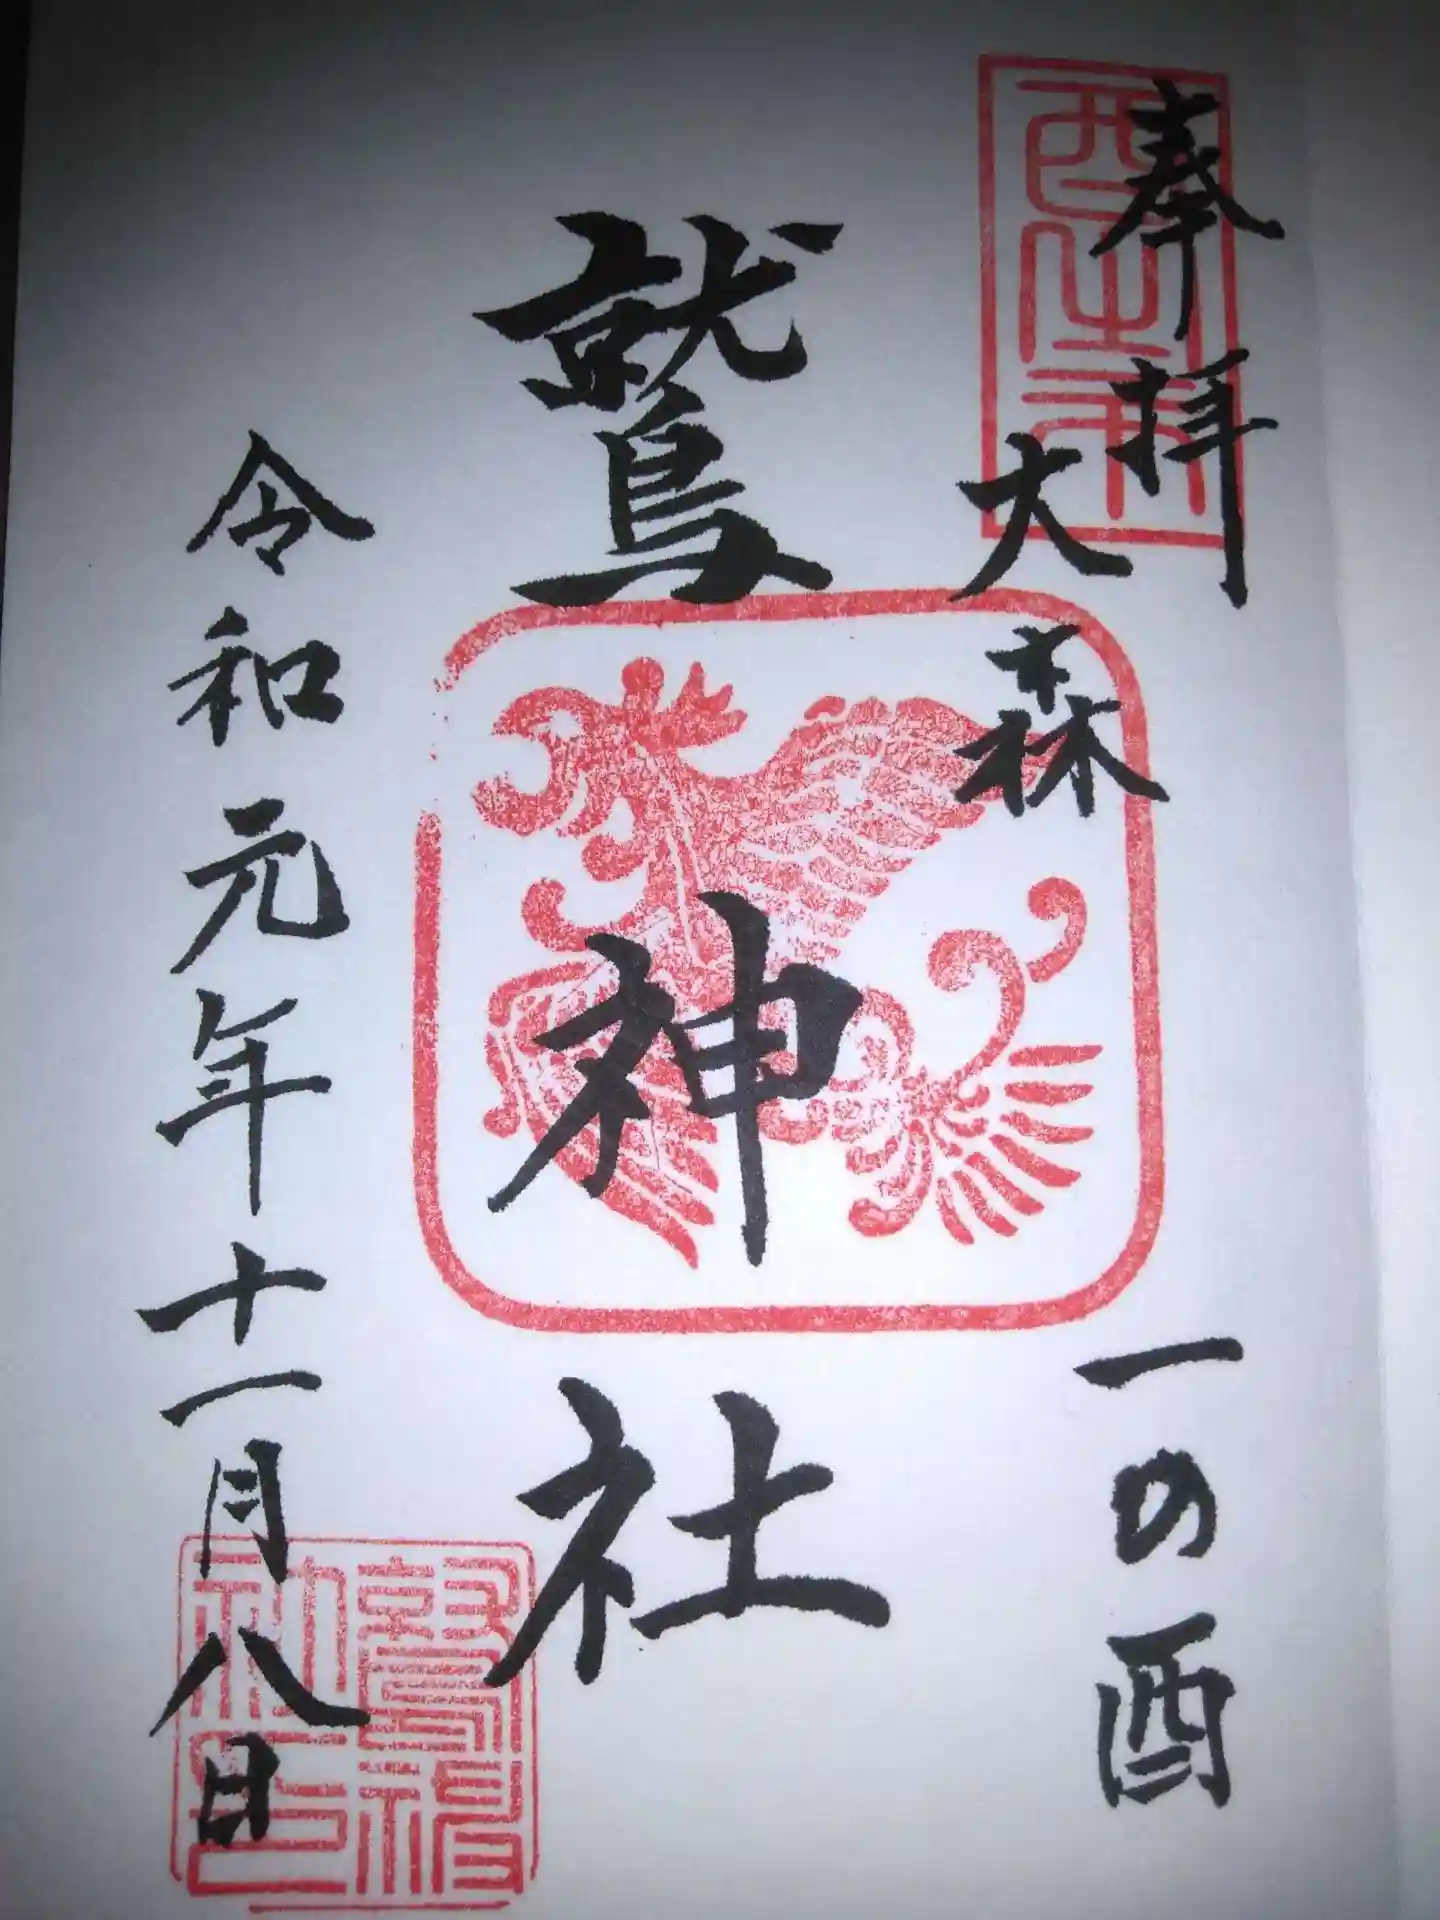 奉拝
大森
一の酉
鷲神社
令和元年十一月八日
酉之市
鷲神社印